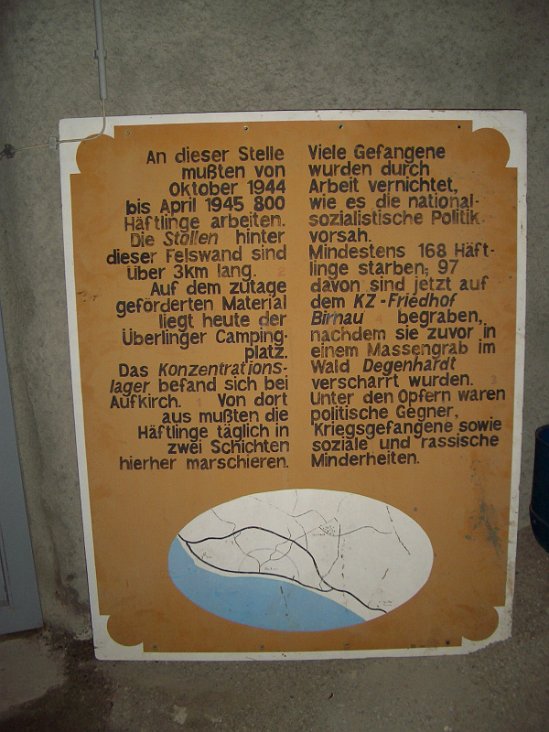 An dieser Stelle
mußten von
Oktober 1944
bis April 1945 800
Häftlinge arbeiten.
Die Stollen hinter
dieser Felswand sind
über 3km lang. 2
Auf dem zutage
geförderten Material
liegt heute der
Überlinger Camping-
platz.
Das Konzentrations-
lager befand sich bei
Aufkirch. 1 Von dort
aus mußten die
Häftlinge täglich in
zwei Schichten
hierher marschieren.
Viele Gefangene
wurden durch
Arbeit vernichtet,
wie es die national-
sozialistische Politik
vorsah.
Mindestens 168 Häft-
linge starben, 97
davon sind jetzt auf
dem KZ-Friedhof
Birnau 4 begraben,
nachdem sie zuvor in
einem Massengrab im
Wald Degenhardt
verscharrt wurden. 3
Unter den Opfern waren
politische Gegner,
Kriegsgefangene sowie
soziale und rassische
Minderheiten.